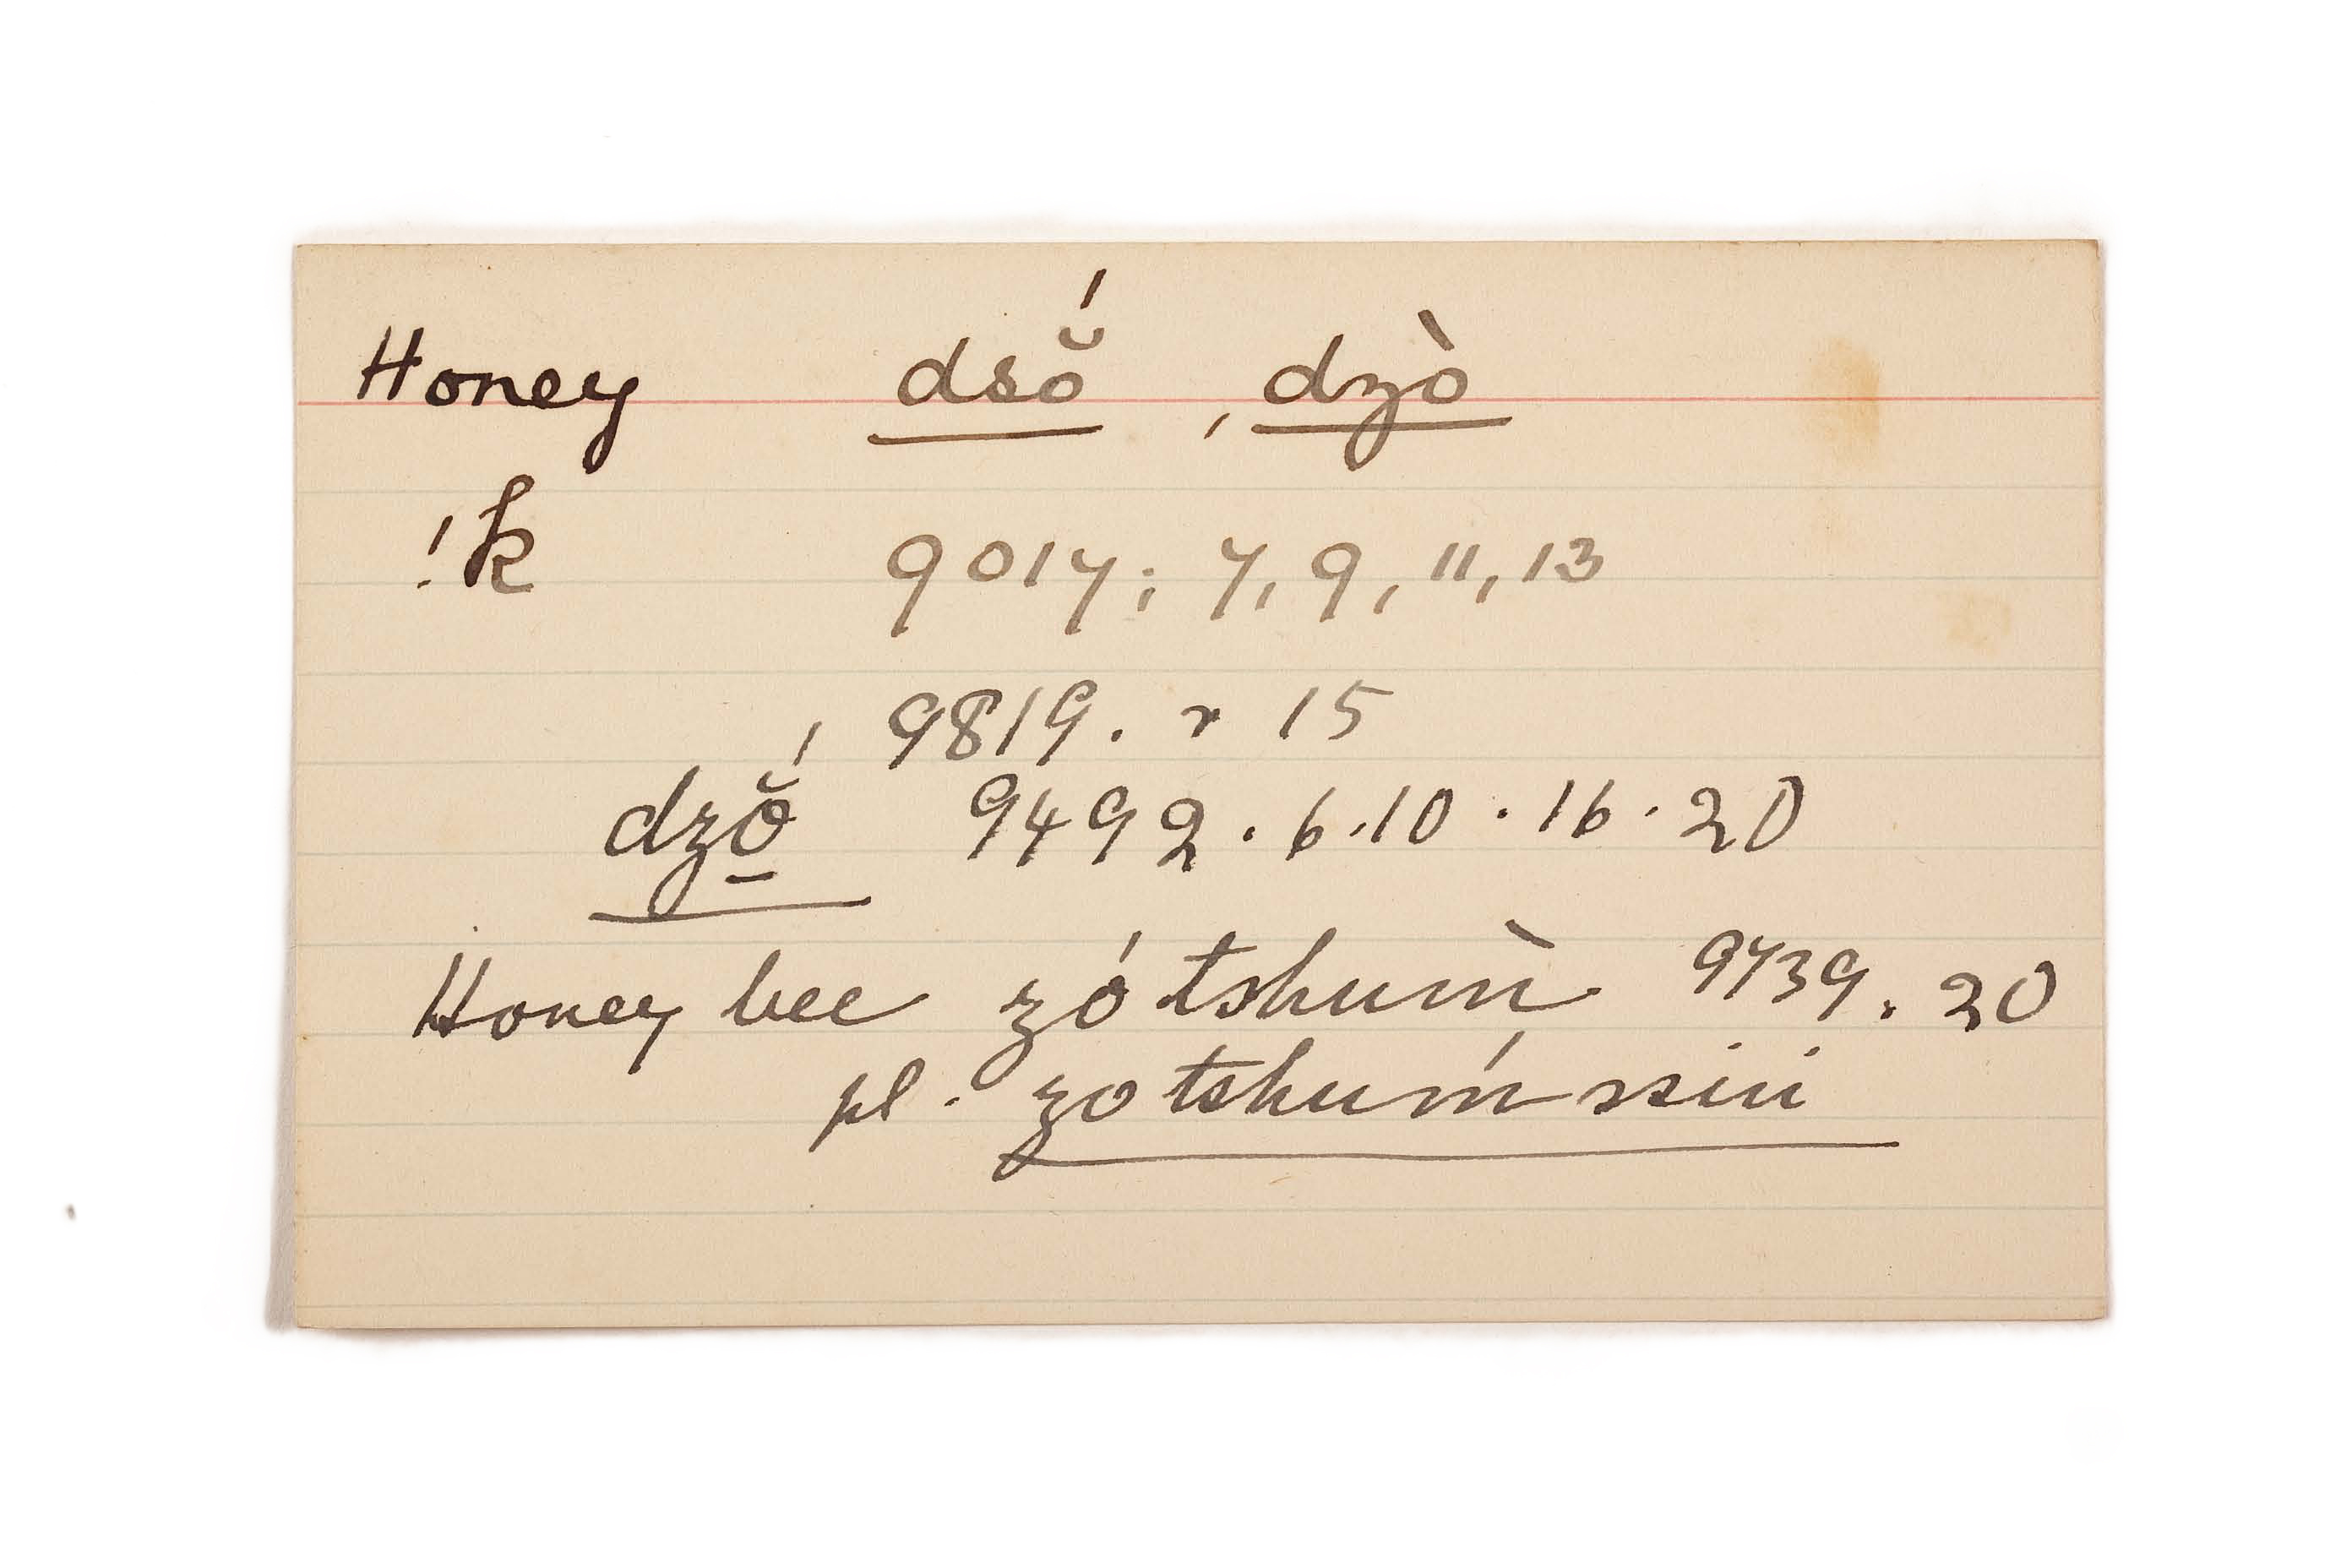 Honey dsŏ́, dzò
!k 9017; 7, 9, 11, 13
9819. r 15
dzŏ̱́ 9492. 6. 10. 16. 20
Honey bee zó tshum̀ 9739. 20
pl. zo tshuḿ